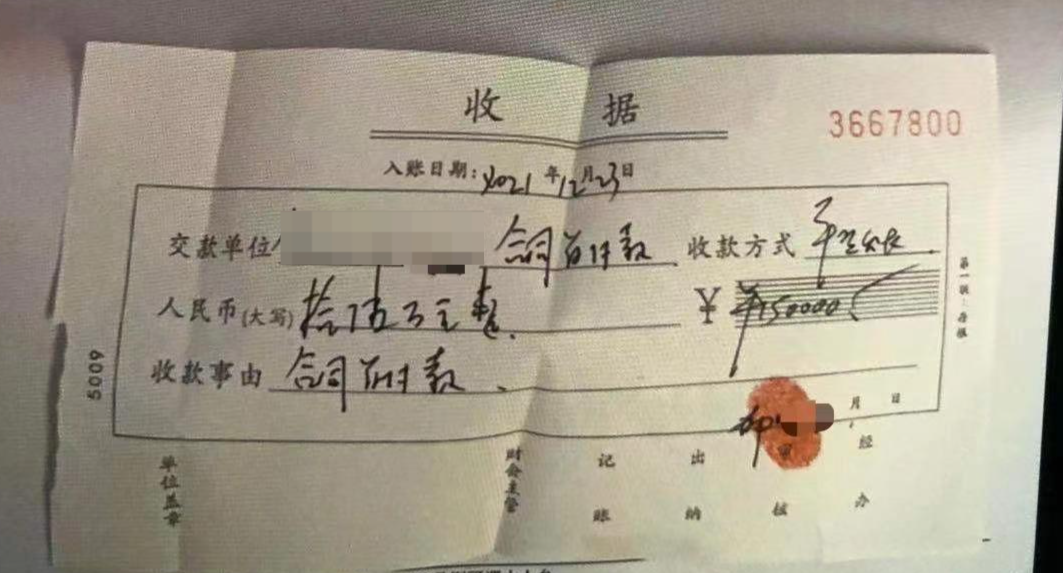 收 据
3667800
入账日期：2021年12月23日
交款单位 合同首付款 收款方式
人民币(大写) 拾伍万元整 ￥ ￥150000
收款事由 合同首付款
月 日
5009
单位盖章 财会主管 记账 出纳 审核 经办